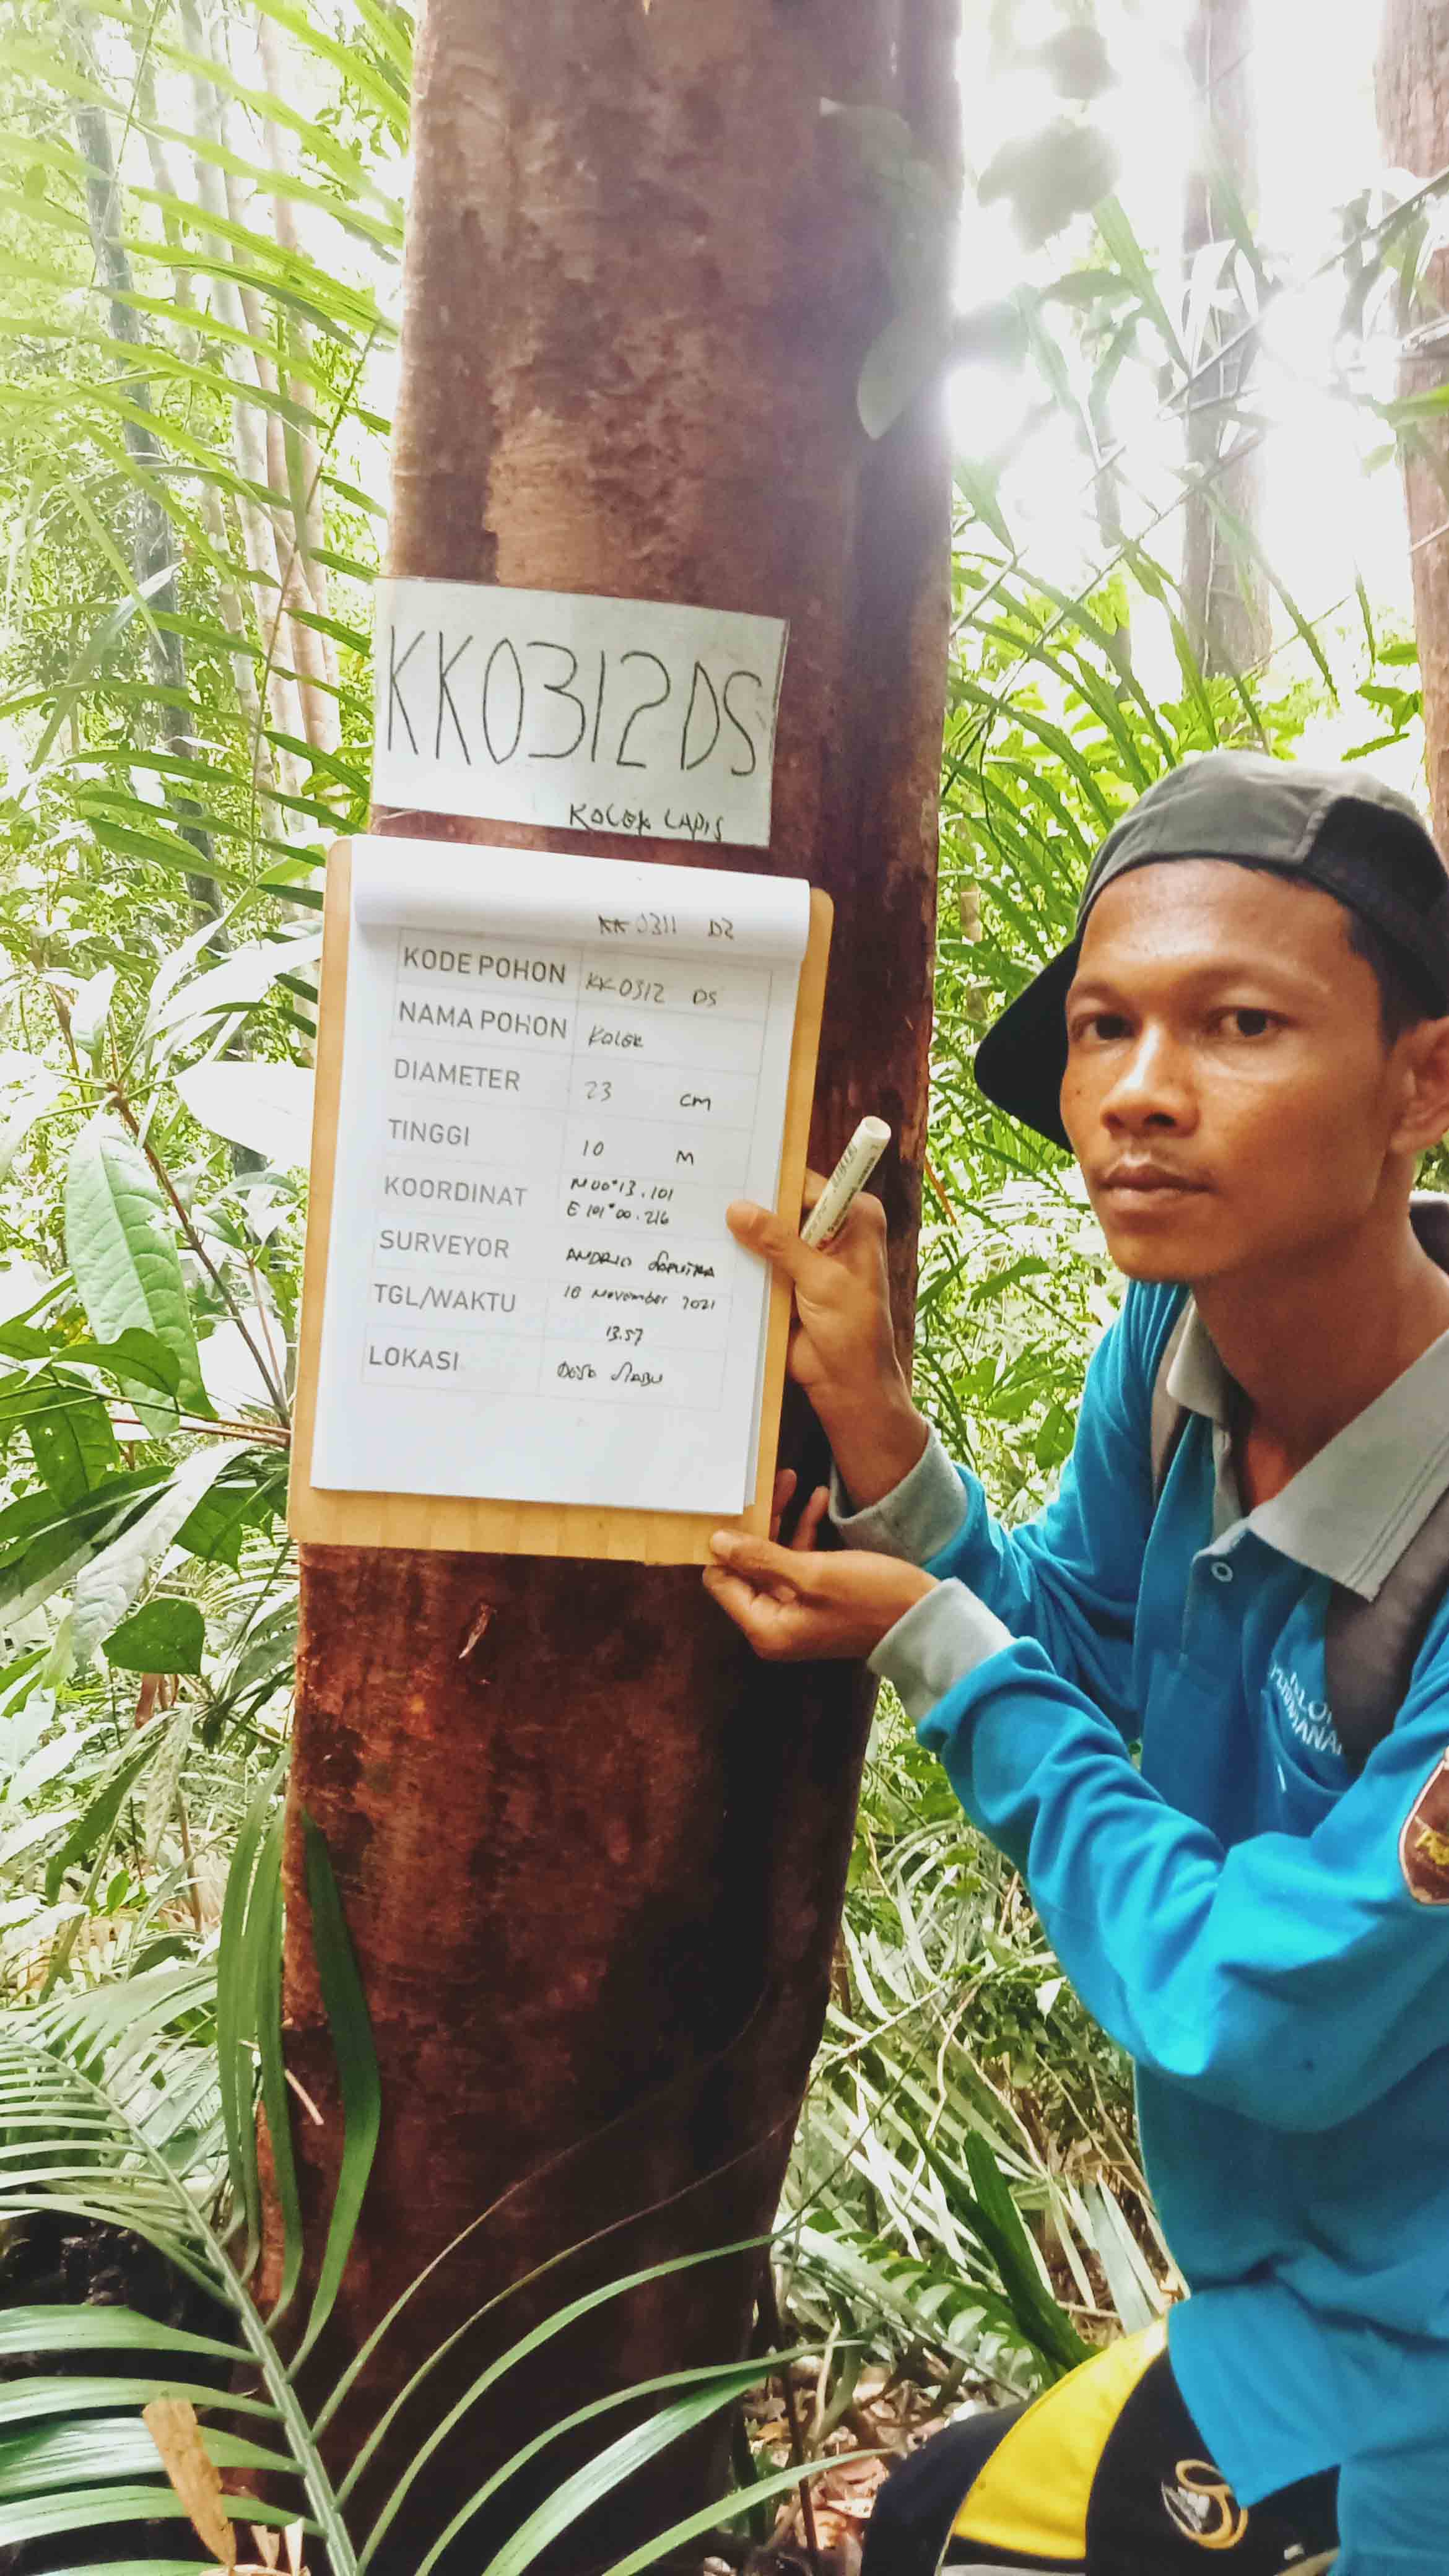 KK0312DS
KOLEK LAPIS
KK 0311 DS
KODE POHON KK 0312 DS
NAMA POHON KOLEK
DIAMETER 23 CM
TINGGI 10 M
KOORDINAT N 00°13.101
E 101°00.216
SURVEYOR ANDRIO SAPUTRA
TGL/WAKTU 10 November 2021
13.57
LOKASI